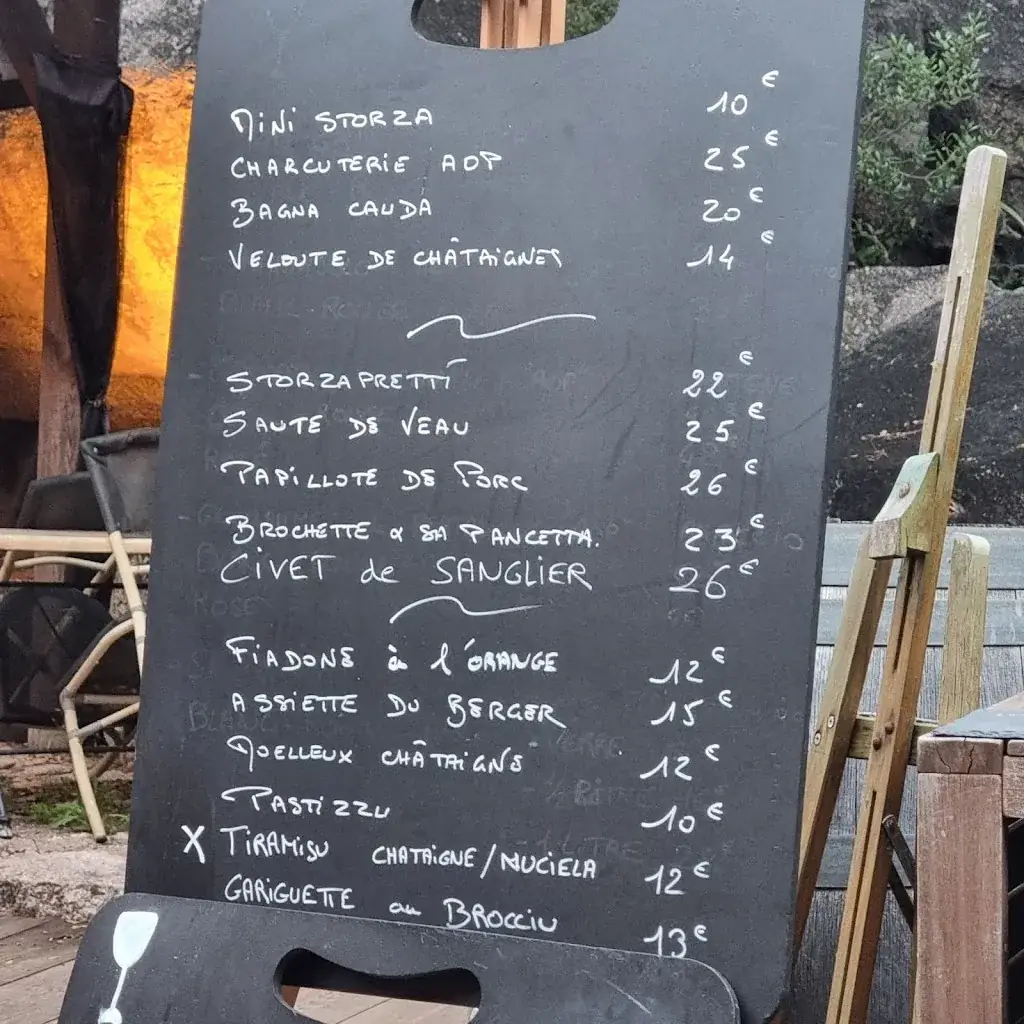 MINI STORZA 10€
CHARCUTERIE AOP 25€
BAGNA CAUDA 20€
VELOUTE DE CHÂTAIGNES 14€
STORZAPRETTI 22€
SAUTE DE VEAU 25€
PAPILLOTE DE PORC 26€
BROCHETTE & SA PANCETTA. 23€
CIVET de SANGLIER 26€
FIADONE à l'ORANGE 12€
ASSIETTE DU BERGER 15€
MOELLEUX CHÂTAIGNE 12€
PASTIZZU 10€
X TIRAMISU CHATAIGNE/NUCIELA 12€
GARIGUETTE au BROCCIU 13€